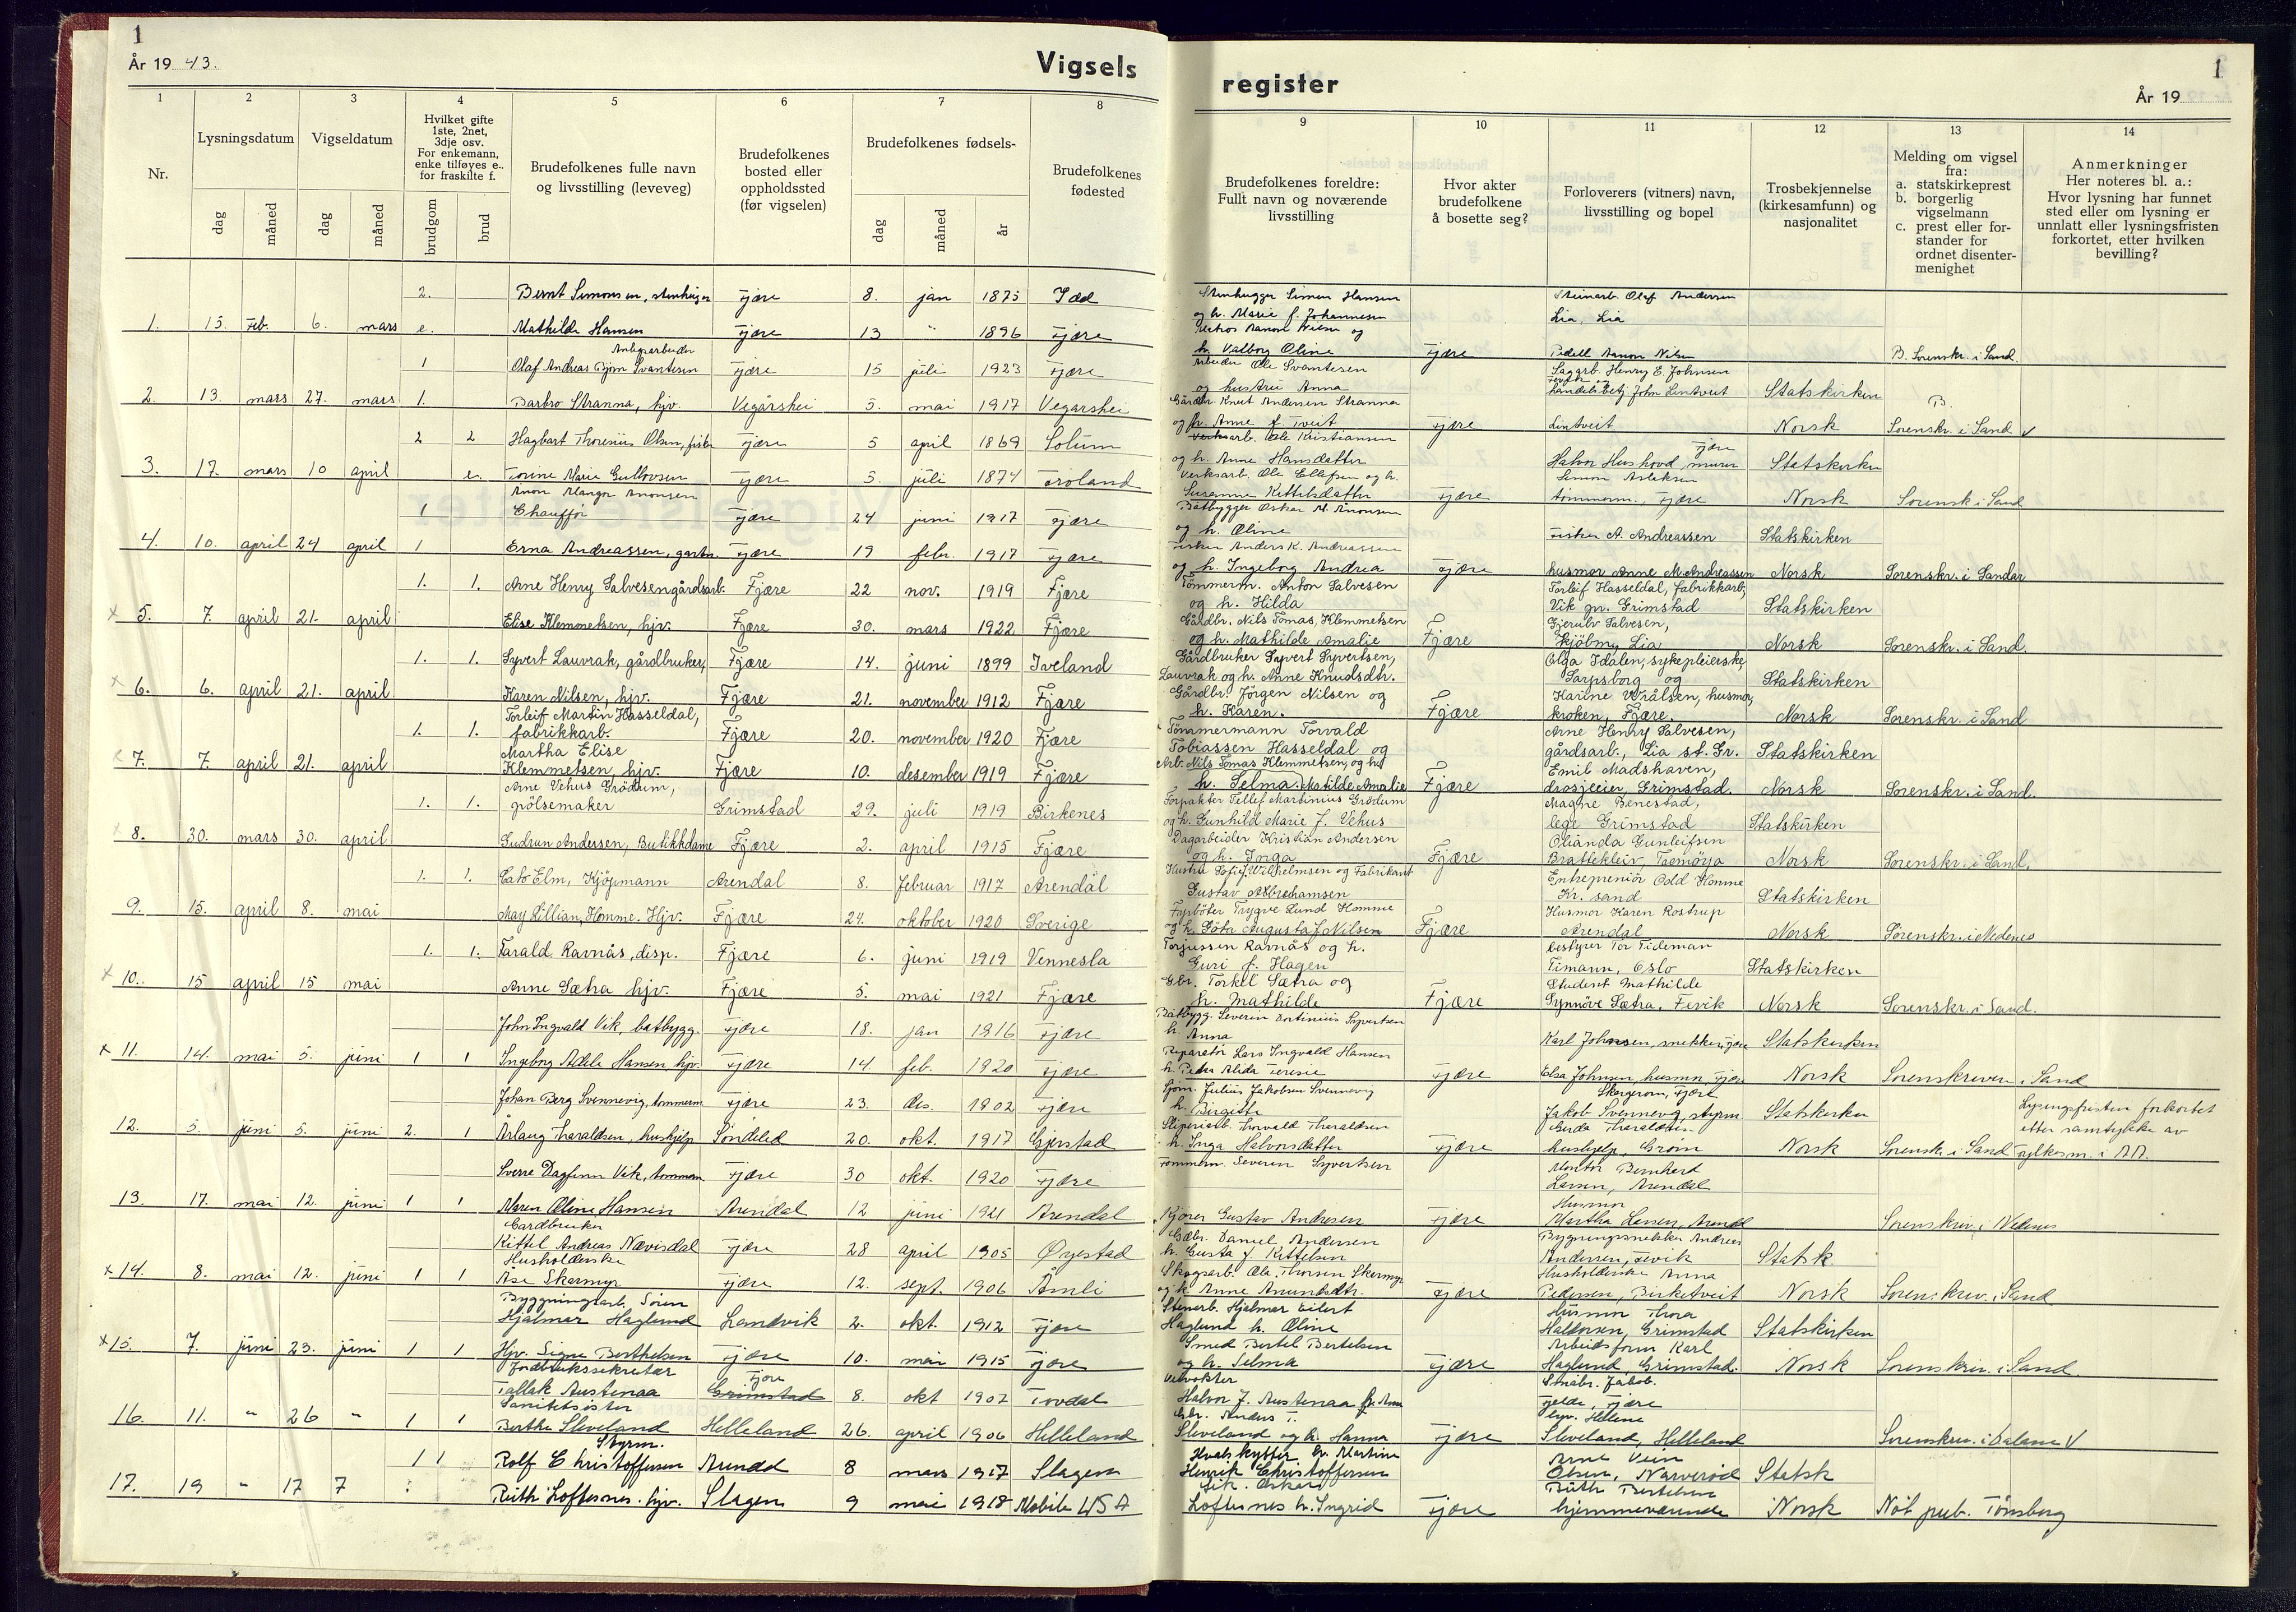 1
År 19 43.
Vigsels
1 2 3 4 5 6 7 8
Nr.
Lysningsdatum
Vigseldatum
Hvilket gifte
1ste, 2net,
3dje osv.
For enkemann,
enke tilføyes e..
for fraskilte f.
Brudefolkenes fulle navn
og livsstilling (leveveg)
Brudefolkenes
bosted eller
oppholdssted
(før vigselen)
Brudefolkenes fødsels-
Brudefolkenes
fødested
dag måned dag måned brudgom brud dag måned år
2. Bernt Simonsen, stenhugger Fjære 8. jan 1875 Idd
1. 15. Feb. 6. mars e. Mathilde Hansen Fjære 13 " 1896 Fjære
1 Olaf Andreas Bjørn Svantesen Fjære 15 juli 1923 Fjære
2. 13. mars 27. mars 1. Barbro Stranna, hjv. Vegårshei 5. mai 1917 Vegarshei
2 2 Hagbart Thorenius Olsen, fisker Fjære 5 april 1869 Solum
3. 17. mars 10 april e. Torine Marie Gullovsen Fjære 5. juli 1874 Froland
1 Chauffør Fjære 24 juni 1917 Fjære
4. 10. april 24 april 1 Erna Andreassen, Fjære 19 febr. 1917 Fjære
1. 1. Arne Henry Salvesen gårdsarb. Fjære 22 nov. 1919 Fjære
x 5. 7. april 21. april Elise Klemmetsen, hjv. Fjære 30. mars 1922 Fjære
1. 1. Syvert Lauvrak, gårdbruker, Fjære 14. juni 1899 Iveland
x 6. 6. april 21. april Karen Nilsen, hjv. Fjære 21. november 1912 Fjære
Torleif Martin Hasseldal,
1. 1. fabrikkarb. Fjære 20. november 1920 Fjære
Martha Elise
x 7. 7. april 21. april Klemmetsen, hjv. Fjære 10. desember 1919 Fjære
Arne Vehus Grödum,
1. 1. pölsemaker Grimstad 29. juli 1919 Birkenes
x 8. 30. mars 30. april Gudrun Andersen, Butikkdame Fjære 2. april 1915 Fjære
1. 1. Cato Elm, Kjöpmann Arendal 8. februar 1917 Arendal
9. 15. april 8. mai May Lillian, Homme. Hjv. Fjære 24. oktober 1920 Sverige
1. 1. Tarald Ravnås, disp. Fjære 6. juni 1919 Vennesla
x 10. 15 april 15 mai Anne Sætra hjv. Fjære 5. mai 1921 Fjære
John Ingvald Vik, båtbygg. Fjære 18. jan 1916 Fjære
x 11. 14. mai 5. juni 1 1 Ingeborg Adele Hansen hjv. Fjære 14 feb. 1920 Fjære
Johan Berg Svennevig, tømmerm Fjære 23. des. 1902 Fjære
12. 5. juni 5. juni 2. 1 Årlaug Taraldsen, hushjelp Søndeled 20. okt. 1917 Gjerstad
Sverre Dagfinn Vik, tømmerm Fjære 30 okt. 1920 Fjære
13. 17. mai 12. juni 1 1 Maren Oline Hansen Arendal 12 juni 1921 Arendal
Gardbruker
Kittel Andreas Nævisdal Fjære 28 april 1905 Øyestad
Husholderske
x 14. 8. mai 12. juni 1 1 Åse Skermyr Fjære 12. sept. 1906 Åmli
Byggningsarb. Sören
Hjalmar Haglund Landvik 2. okt. 1912 Fjære
x 15. 7. juni 23. juni 1 1 Hjv. Signe Berthelsen Fjære 10. mai 1915 Fjære
Jordbrukssekretær Fjære
Tallak Austenaa Grimstad 8. okt 1907 Tovdal
Sanitetsister
16. 11. " 26 " 1 1 Berthe Sleveland Helleland 26. april 1906 Helleland
Styrm.
1 1 Rolf Christoffersen Arendal 8 mars 1917 Slagen
17. 19 " 17 7 Ruth Loftesnes. hjv. Slagen 9 mai 1918 Mobile USA
register
1
År 19
9 10 11 12 13 14
Brudefolkenes foreldre:
Fullt navn og noværende
livsstilling
Hvor akter
brudefolkene
å bosette seg?
Forloverers (vitners) navn,
livsstilling og bopel
Trosbekjennelse
(kirkesamfunn) og
nasjonalitet
Melding om vigsel
fra:
a. statskirkeprest
b. borgerlig
vigselmann
c. prest eller for-
stander for
ordnet disenter-
menighet
Anmerkninger
Her noteres bl. a.:
Hvor lysning har funnet
sted eller om lysning er
unnlatt eller lysningsfristen
forkortet, etter hvilken
bevilling?
Stenhugger Simen Hansen Steinarb. Olaf Andersen
og h. Marie f. Johannesen Lia, Lia
h. Valborg Oline Fjære Pedell Aanon Nilsen B. Sorenskr. i Sand.
Arbeider Ole Svantesen Sagarb. Henry E. Johnsen
og hustru Anna John Lintveit Statskirken
Gårdbr. Knut Andersen Stranna B.
og h. Anne f. Tveit Fjære Lintveit Norsk Sorenskr. i Sand v
Verksarb. Ole Kristiansen Fjære
og h. Anne Hansdatter Halvor Hushovd, murer Statskirken
Verksarb. Ole Ellefsen og h. Simon Aslaksen
Susanne Kittelsdatter Fjære tømmerm. Fjære Norsk Sorensk i Sand
Båtbygger Oskar M. Anonsen
og h. Oline Fisker A. Andreassen Statskirken
Fisker Anders K. Andreassen
og h. Ingeborg Andrea Fjære husmor Anne M. Andreassen Norsk Sorenskr. i Sandar
Tömmerm. Anton Salvesen Torleif Hasseldal, fabrikkarb,
og h. Hilda Vik pr. Grimstad Statskirken
Gårdbr. Nils Tomas, Klemmetsen Gjerulv Salvesen,
og h. Mathilde Amalie Fjære Lia Norsk Sorenskr. i Sand.
Gårdbruker Syvert Syvertsen, Olga Idalen, sykepleierske,
Lauvrak og h. Anne Knudsdtr. Sarpsborg og Statskirken
Gårdbr. Jörgen Nilsen og Karine Vrålsen, husmor,
h. Karen. Fjære kroken, Fjære. Norsk Sorenskr. i Sand
Tömmermann Torvald Arne Henry Salvesen,
Tobiassen Hasseldal og gårdsarb., Lia st. Gr. Statskirken
Arb. Nils Tomas Klemmetsen, og h. Emil Madshaven,
h. Selma. Matilde Amalie Fjære drosjeeier, Grimstad. Norsk Sorenskr. i Sand.
Forpakter Tellef Martinius Grödum Magne Benestad,
og h. Gunhild Marie f. Vehus lege Grimstad Statskirken
Dagarbeider Kristian Andersen Olianda Gunleifsen
og h. Inga Fjære Brattekleiv, Tromøya Norsk Sorenskr. i Sand.
Hustru Sofie f. Wilhelmsen og Fabrikant Entreprenör Odd Homme
Gustav Abrahamsen Kr. sand Statskirken
Trygve Lund Homme Husmor Karen Rostrup
og h. Göta Augusta f. Nilsen Fjære Arendal Norsk Sorenskr. i Nedenes
Torjussen Ravnås og h. bestyrer Tor Tideman
Guri f. Hagen Timann, Oslo Statskirken
Gbr. Torkel Sætra og Student Mathilde
h. Mathilde Fjære Synnöve Sætra, Fevik Norsk Sorenskr. i Sand.
Båtbygg. Severin Entinius Syvertsen
h. Anna Karl Johnsen, snekker, Fjære Statskirken
Reparatör Lars Ingvald Hansen
h. Petra Alida Teresie Fjære Elsa Johnsen, husmor, Fjære Norsk Sorenskriveren i Sand
Sjöm. Julius Jakobsen Svennevig Skogerom, Fjære
h. Birgitte Jakob Svennevig, styrm Statskirken Lysingsfristen forkortet
Sliperiarb. Torvald Tharaldsen Gerda Tharaldsen etter samtykke av
h. Inga Halvorsdatter Fjære hushjelp, Grøm Norsk Sorensk. i Sand fylkesm. i A.A.
Tømmerm. Severin Syvertsen Montør Bernhard
Larsen, Arendal
Husmor
Kjører Gustav Andresen Fjære Martha Larsen, Arendal Sorenskriv. i Nedenes
Gdbr. Daniel Andersen Bygningssnekker Andreas
h. Gusta f. Kittelsen Andersen, Fevik Statsk.
Skogsarb. Ole. Thorsen Skermyr Husholderske Anna
og h. Anne Anundsdtr. Fjære Pedersen, Birketveit Norsk Sorenskriv. i Sand
Stenarb. Hjelmar Eilert Husmor Thora
Haglund h. Oline Halvorsen, Grimstad Statskirken
Smed Bertel Bertelsen Arbeidsform Karl
og h. Selma Fjære Haglund, Grimstad. Norsk Sorenskriv. i Sand.
Veivokter Småbr. Jakob.
Halvor J. Austenaa Fjelde, Fjære
Gbr. Anders T. hjv. Helene
Sleveland og h. Hanna Fjære Sleveland, Helleland Sorenskriv. i Dalane V
Hvalskytter h. Martine Arne Vein
Henrik Christoffersen Olsen, Narverød Statsk
Oskar Ruth Bertelsen
Loftesnes h. Ingrid Fjære hjemmeværende Norsk Not pub. Tönsberg